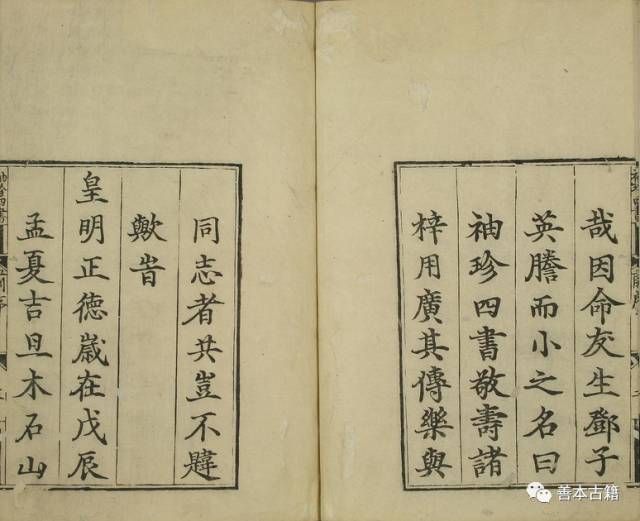 哉因命友生鄧子
英謄而小之名曰
袖珍四書敬壽諸
梓用廣其傳樂與
同志者共豈不韙
歟旹
皇明正徳嵗在戊辰
孟夏吉旦木石山
善本古籍